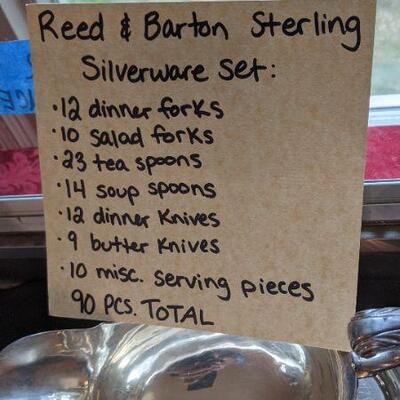 Reed & Barton Sterling
Silverware Set:
·12 dinner forks
·10 salad forks
·23 tea spoons
·14 soup spoons
·12 dinner Knives
·9 butter Knives
·10 misc. serving pieces
90 PCS. TOTAL